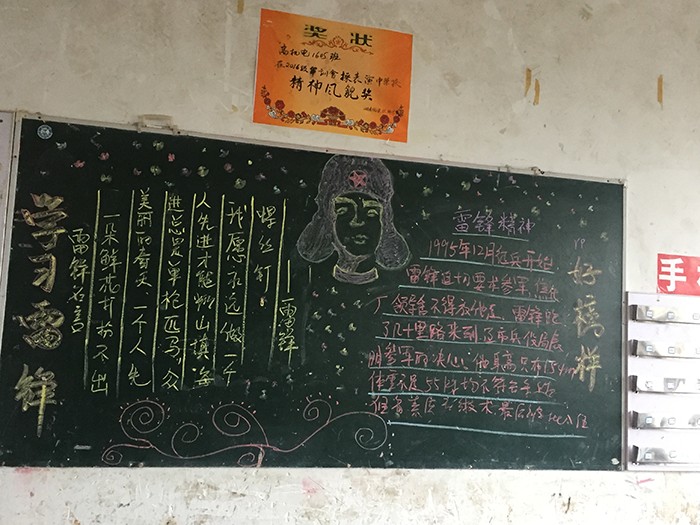 奖状
高机电1645班
在2016级军训会操表演中荣获
精神风貌奖
学习雷锋
雷锋名言
一朵鲜花打扮不出
美丽的春天,一个人先
进总是单枪匹马,众
人先进才能移山填海
我愿永远做一个
螺丝钉
——雷锋
雷锋精神
1995年12月征兵开始
雷锋迫切要求参军,焦化
厂领导舍不得放他走,雷锋跑
了几十里路来到辽市兵役局表
明参军的决心,他身高只有1.54m
体重不足55kg均不符合条件
但 素质 技术最后 入伍
好榜样
手